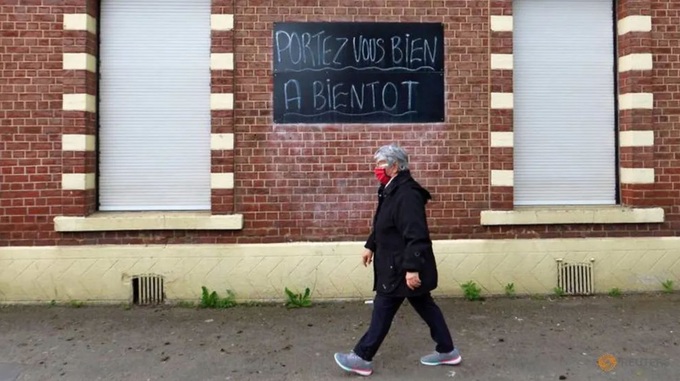 PORTEZ VOUS BIEN
A BIENTOT
REUTERS